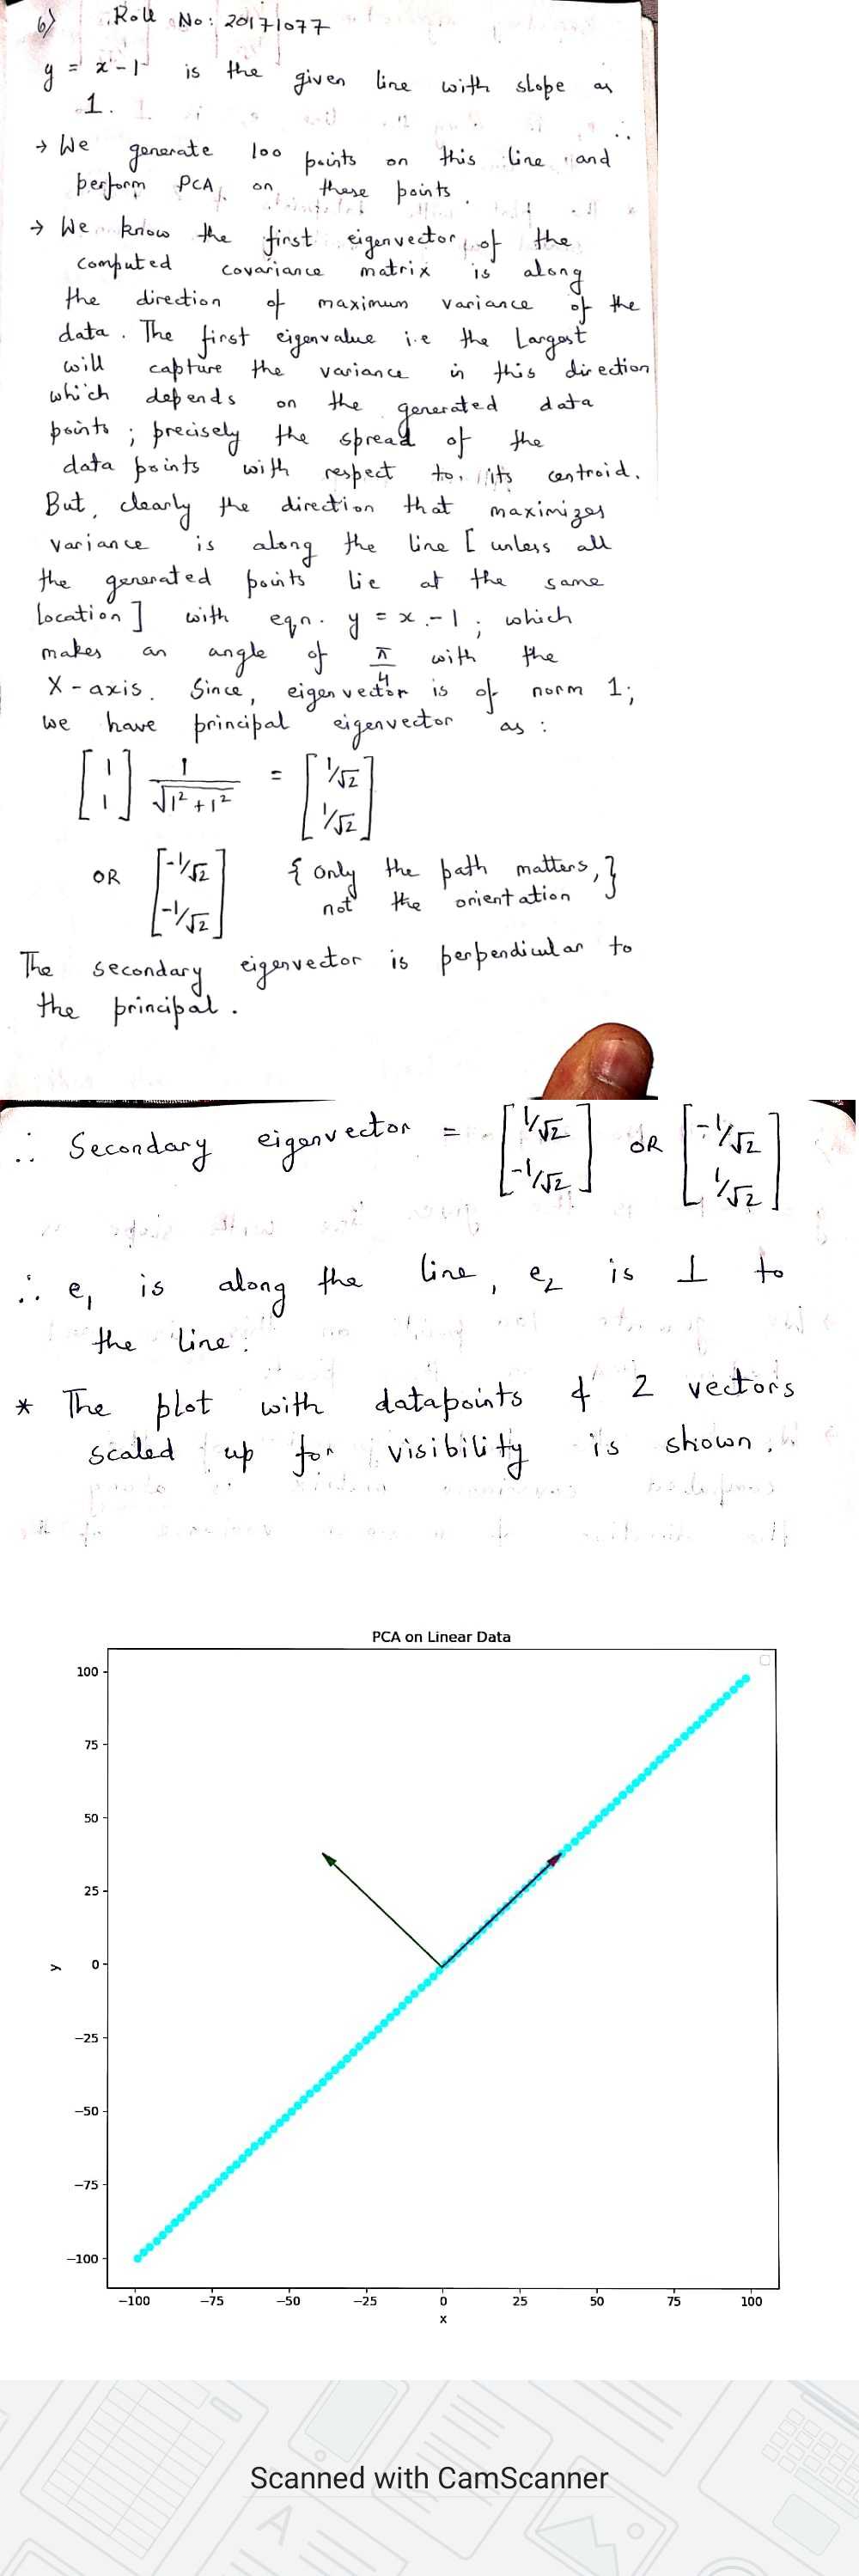 6) Roll No: 20171077
y = x-1 is the given line with slope as
1.
→ We generate 100 points on this line and
perform PCA on these points.
→ We know the first eigenvector of the
computed covariance matrix is along
the direction of maximum variance of the
data. The first eigenvalue i.e the Largest
will capture the variance in this direction
which depends on the generated data
points ; precisely the spread of the
data points with respect to its centroid.
But, clearly the direction that maximizes
variance is along the line [ unless all
the generated points lie at the same
location ] with eqn. y = x - 1 ; which
makes an angle of π/4 with the
X-axis. Since, eigenvector is of norm 1;
we have principal eigenvector as :
[1 1] 1/√(1²+1²) = [1/√2 1/√2]
OR [-1/√2 -1/√2] { only the path matters, }
not the orientation
The secondary eigenvector is perpendicular to
the principal.
∴ Secondary eigenvector = [1/√2 -1/√2] OR [-1/√2 1/√2]
∴ e₁ is along the line, e₂ is ⊥ to
the line.
* The plot with datapoints & 2 vectors
scaled up for visibility is shown.
PCA on Linear Data
100
75
50
25
0
−25
−50
−75
−100
y
−100 −75 −50 −25 0 25 50 75 100
x
Scanned with CamScanner